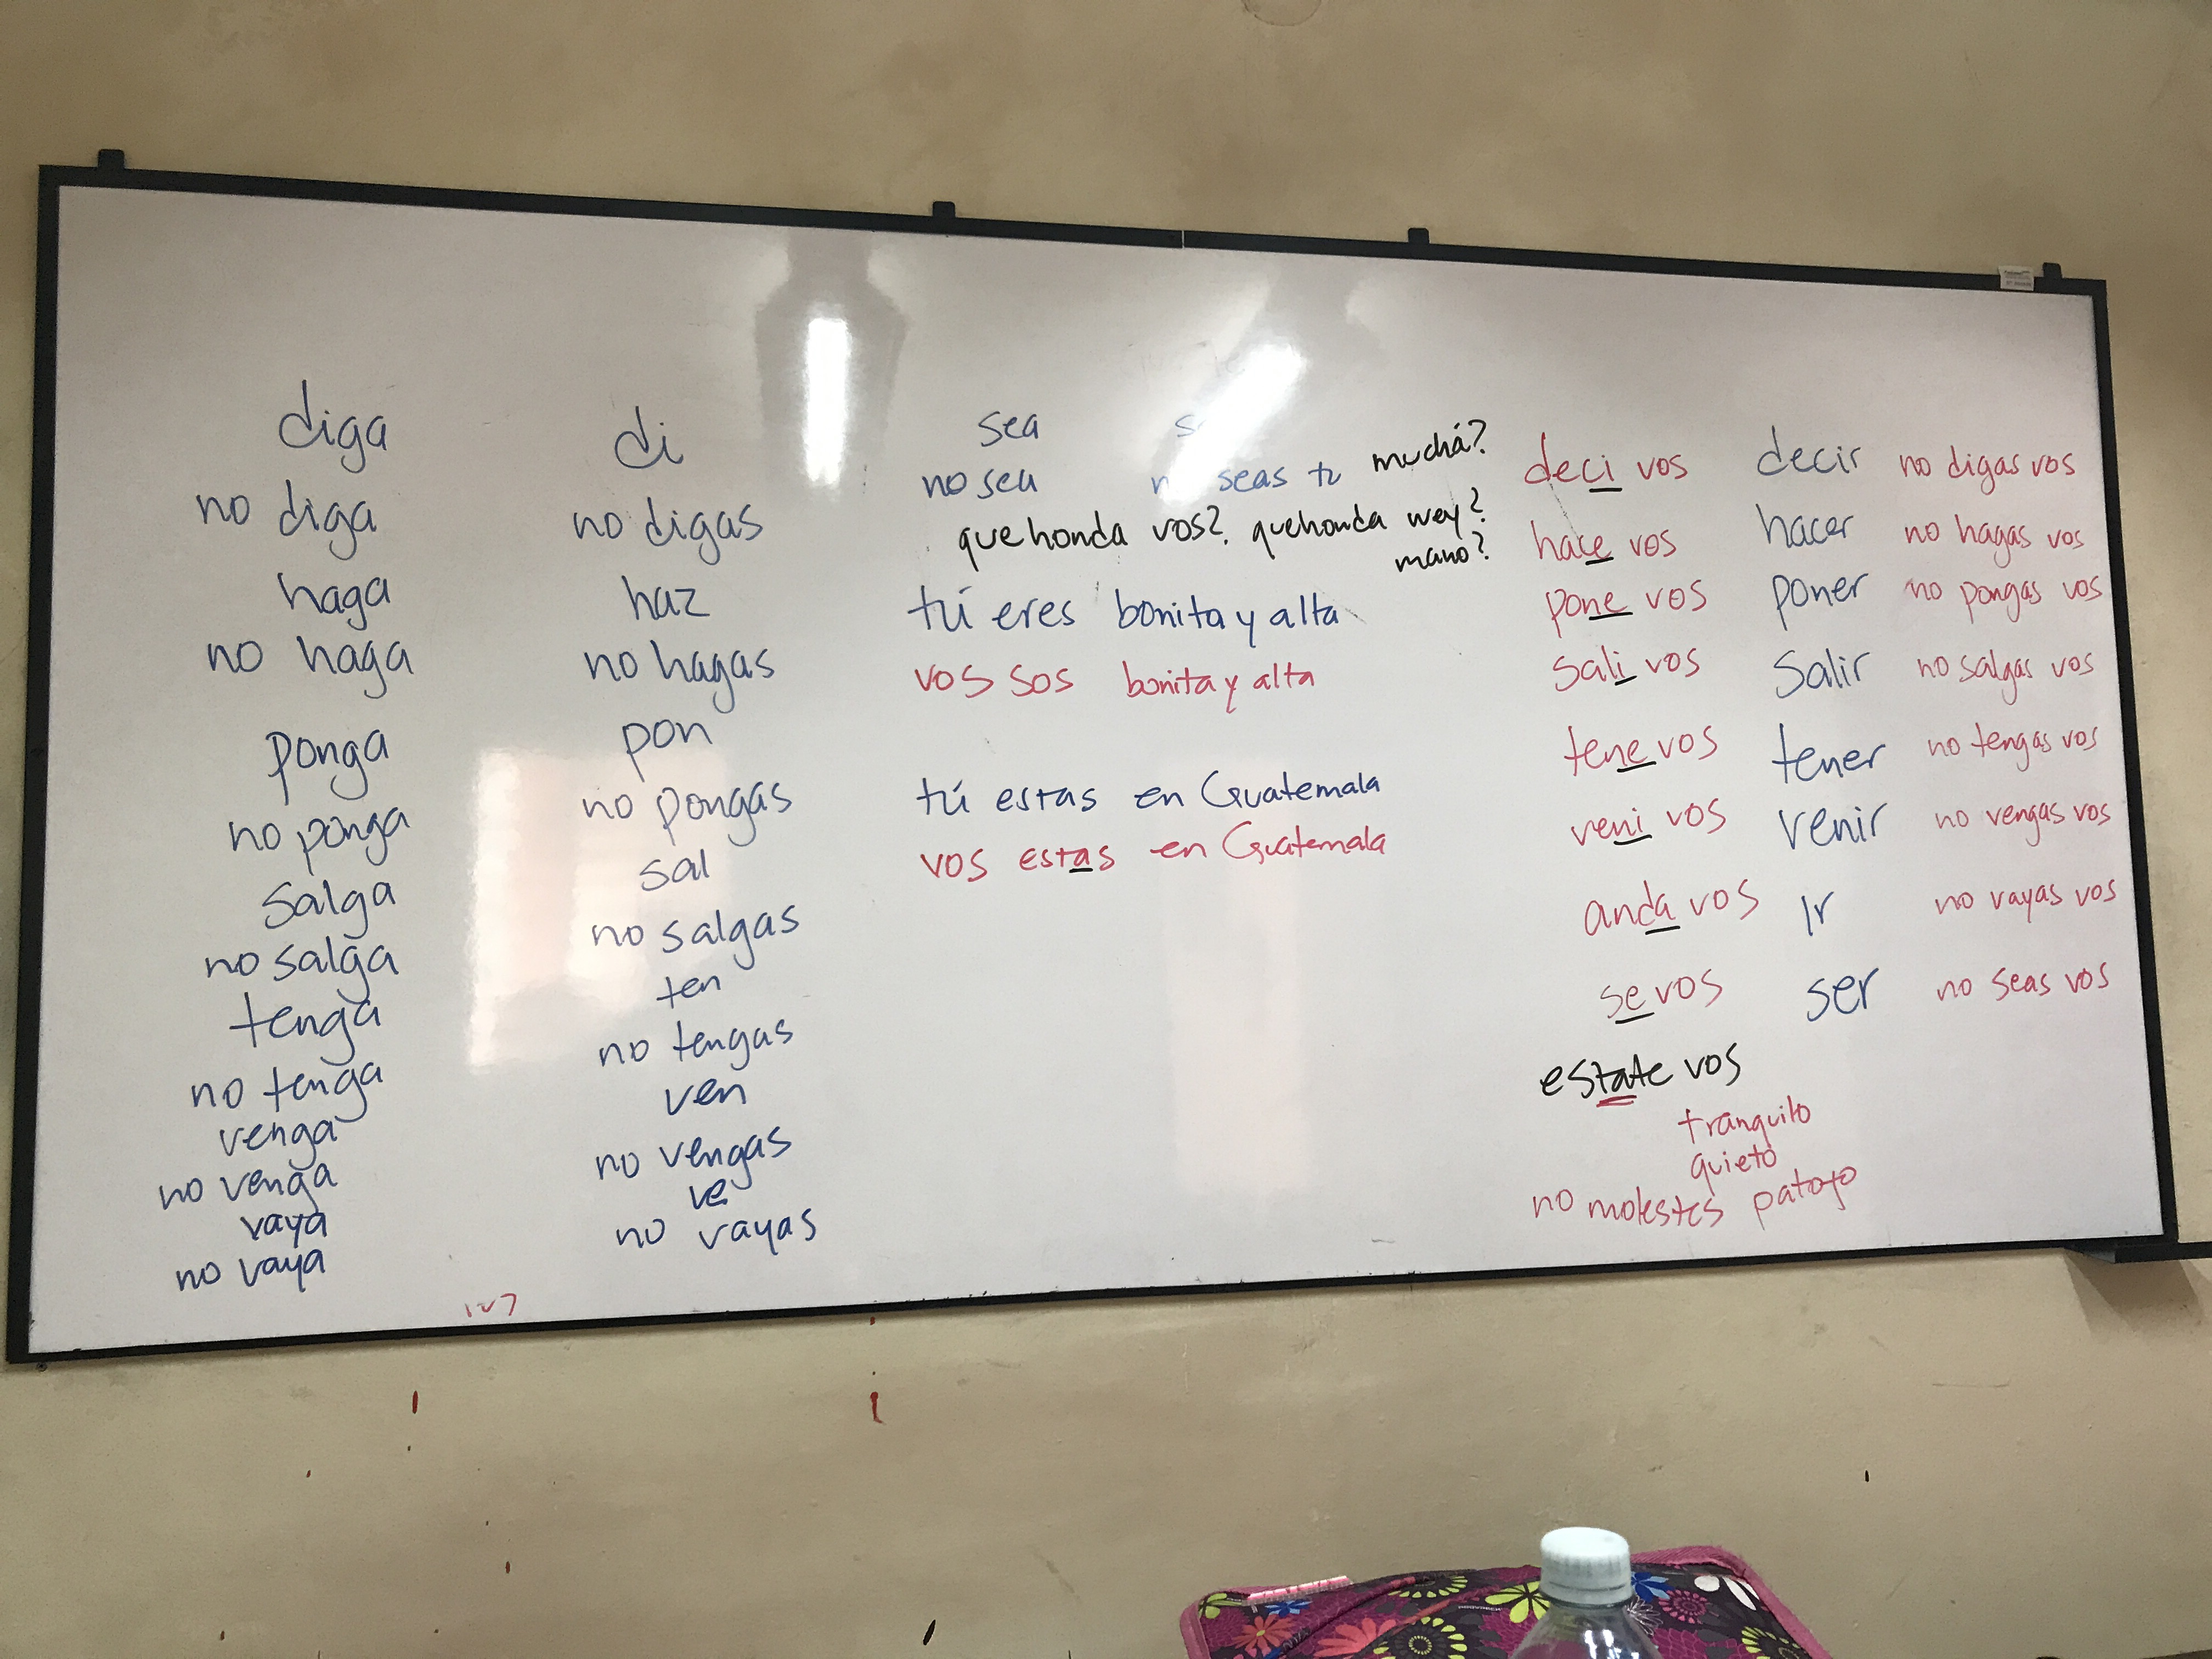 diga
no diga
haga
no haga
ponga
no ponga
salga
no salga
tenga
no tenga
venga
no venga
vaya
no vaya
di
no digas
haz
no hagas
pon
no pongas
sal
no salgas
ten
no tengas
ven
no vengas
ve
no vayas
sea
no sea seas tu muchá?
que honda vos? que honda wey?
mano?
tú eres bonita y alta
vos sos bonita y alta
tú estas en Guatemala
vos estas en Guatemala
deci vos decir no digas vos
hace vos hacer no hagas vos
pone vos poner no pongas vos
sali vos salir no salgas vos
tene vos tener no tengas vos
veni vos venir no vengas vos
anda vos Ir no vayas vos
se vos ser no seas vos
estate vos
tranquilo
quieto
no molestes patojo